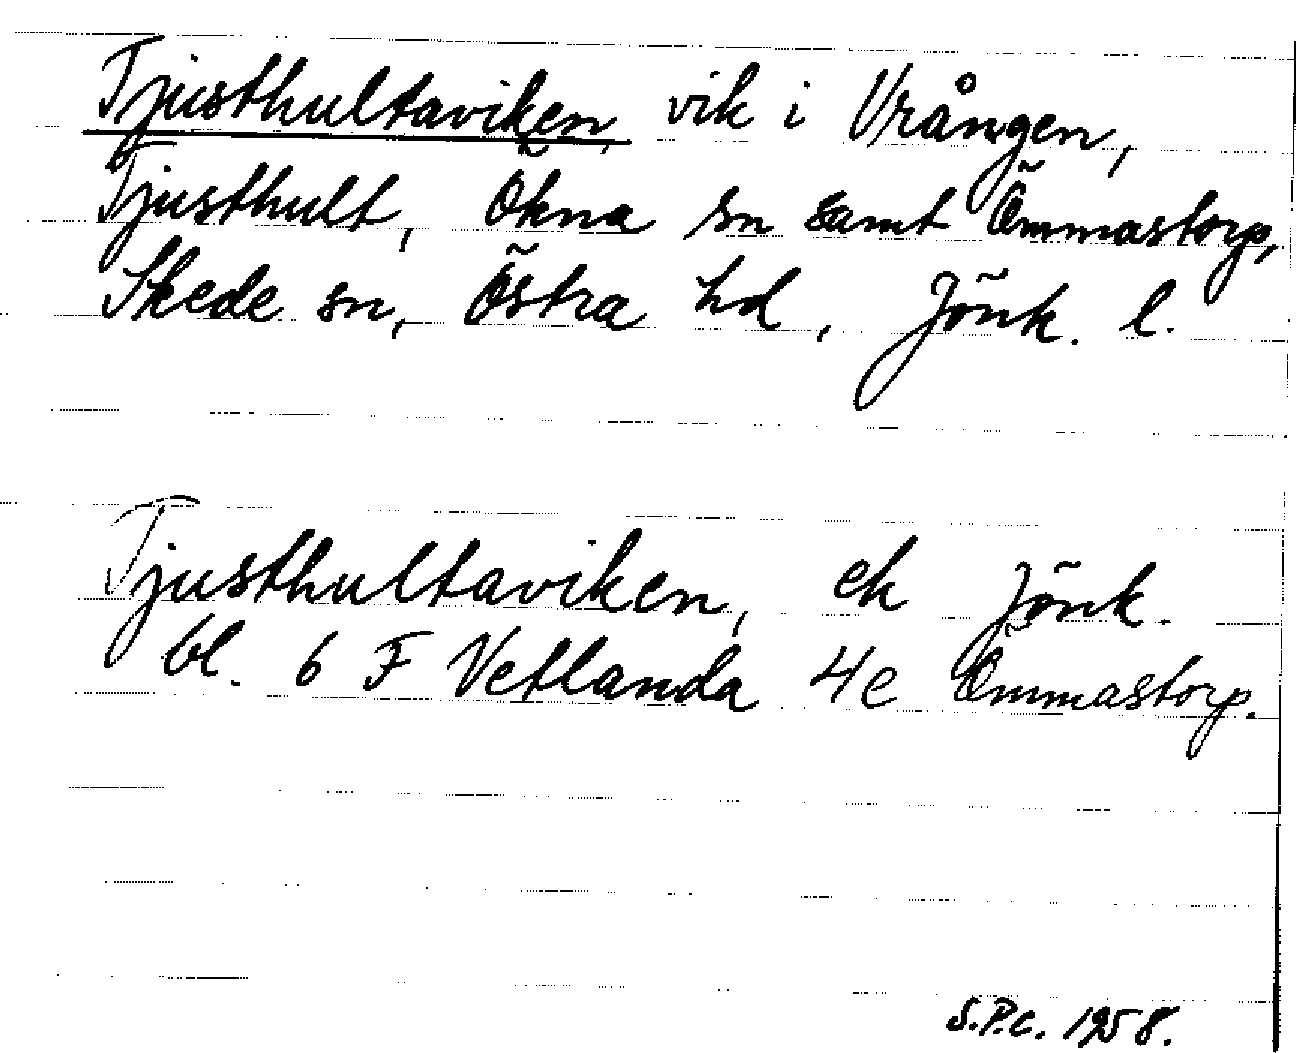 Tjusthultaviken, vik i Vrången,
Tjusthult, Ökna sn samt Ömmastorp,
Skede sn, Östra hd, Jönk. l.
Tjusthultaviken, ek Jönk.
bl. 6 F Vetlanda 4e Ömmastorp.
S.P.C. 1958.